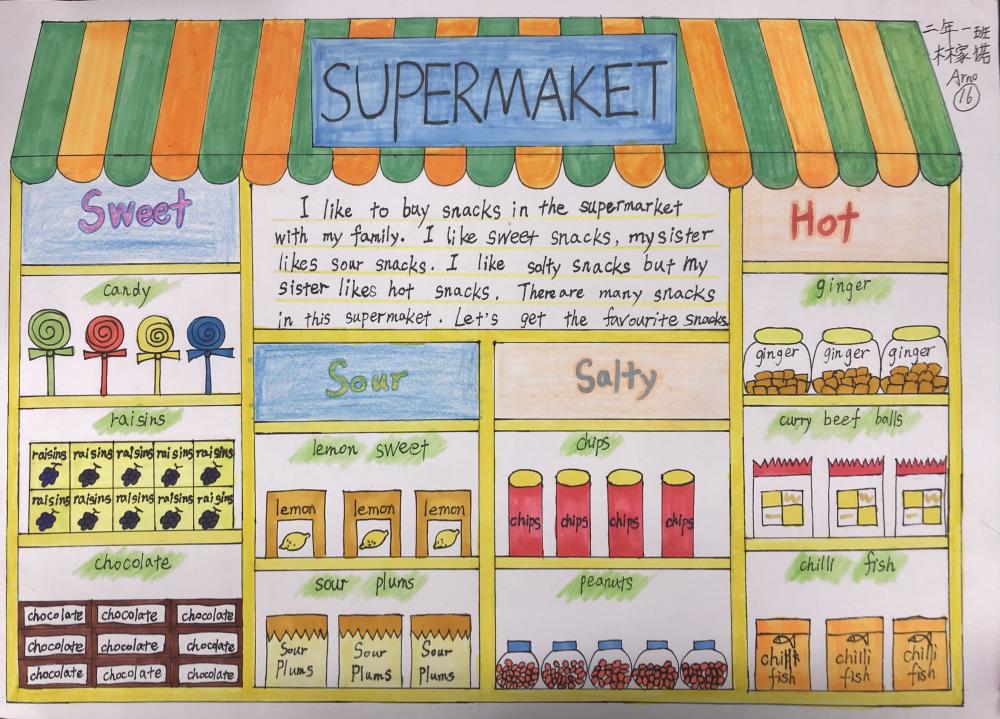 二年一班
林家偌
Arno
16
SUPERMAKET
Sweet
candy
raisins
raisins raisins raisins raisins raisins
raisins raisins raisins raisins raisins
chocolate
chocolate chocolate chocolate
chocolate chocolate chocolate
chocolate chocolate chocolate
I like to buy snacks in the supermarket
with my family. I like sweet snacks, my sister
likes sour snacks. I like salty snacks but my
sister likes hot snacks. There are many snacks
in this supermaket. Let's get the favourite snacks.
Sour
lemon sweet
lemon lemon lemon
sour plums
Sour Sour Sour
Plums Plums Plums
Salty
chips
chips chips chips chips
peanuts
Hot
ginger
ginger ginger ginger
curry beef balls
chilli fish
chilli chilli chilli
fish fish fish